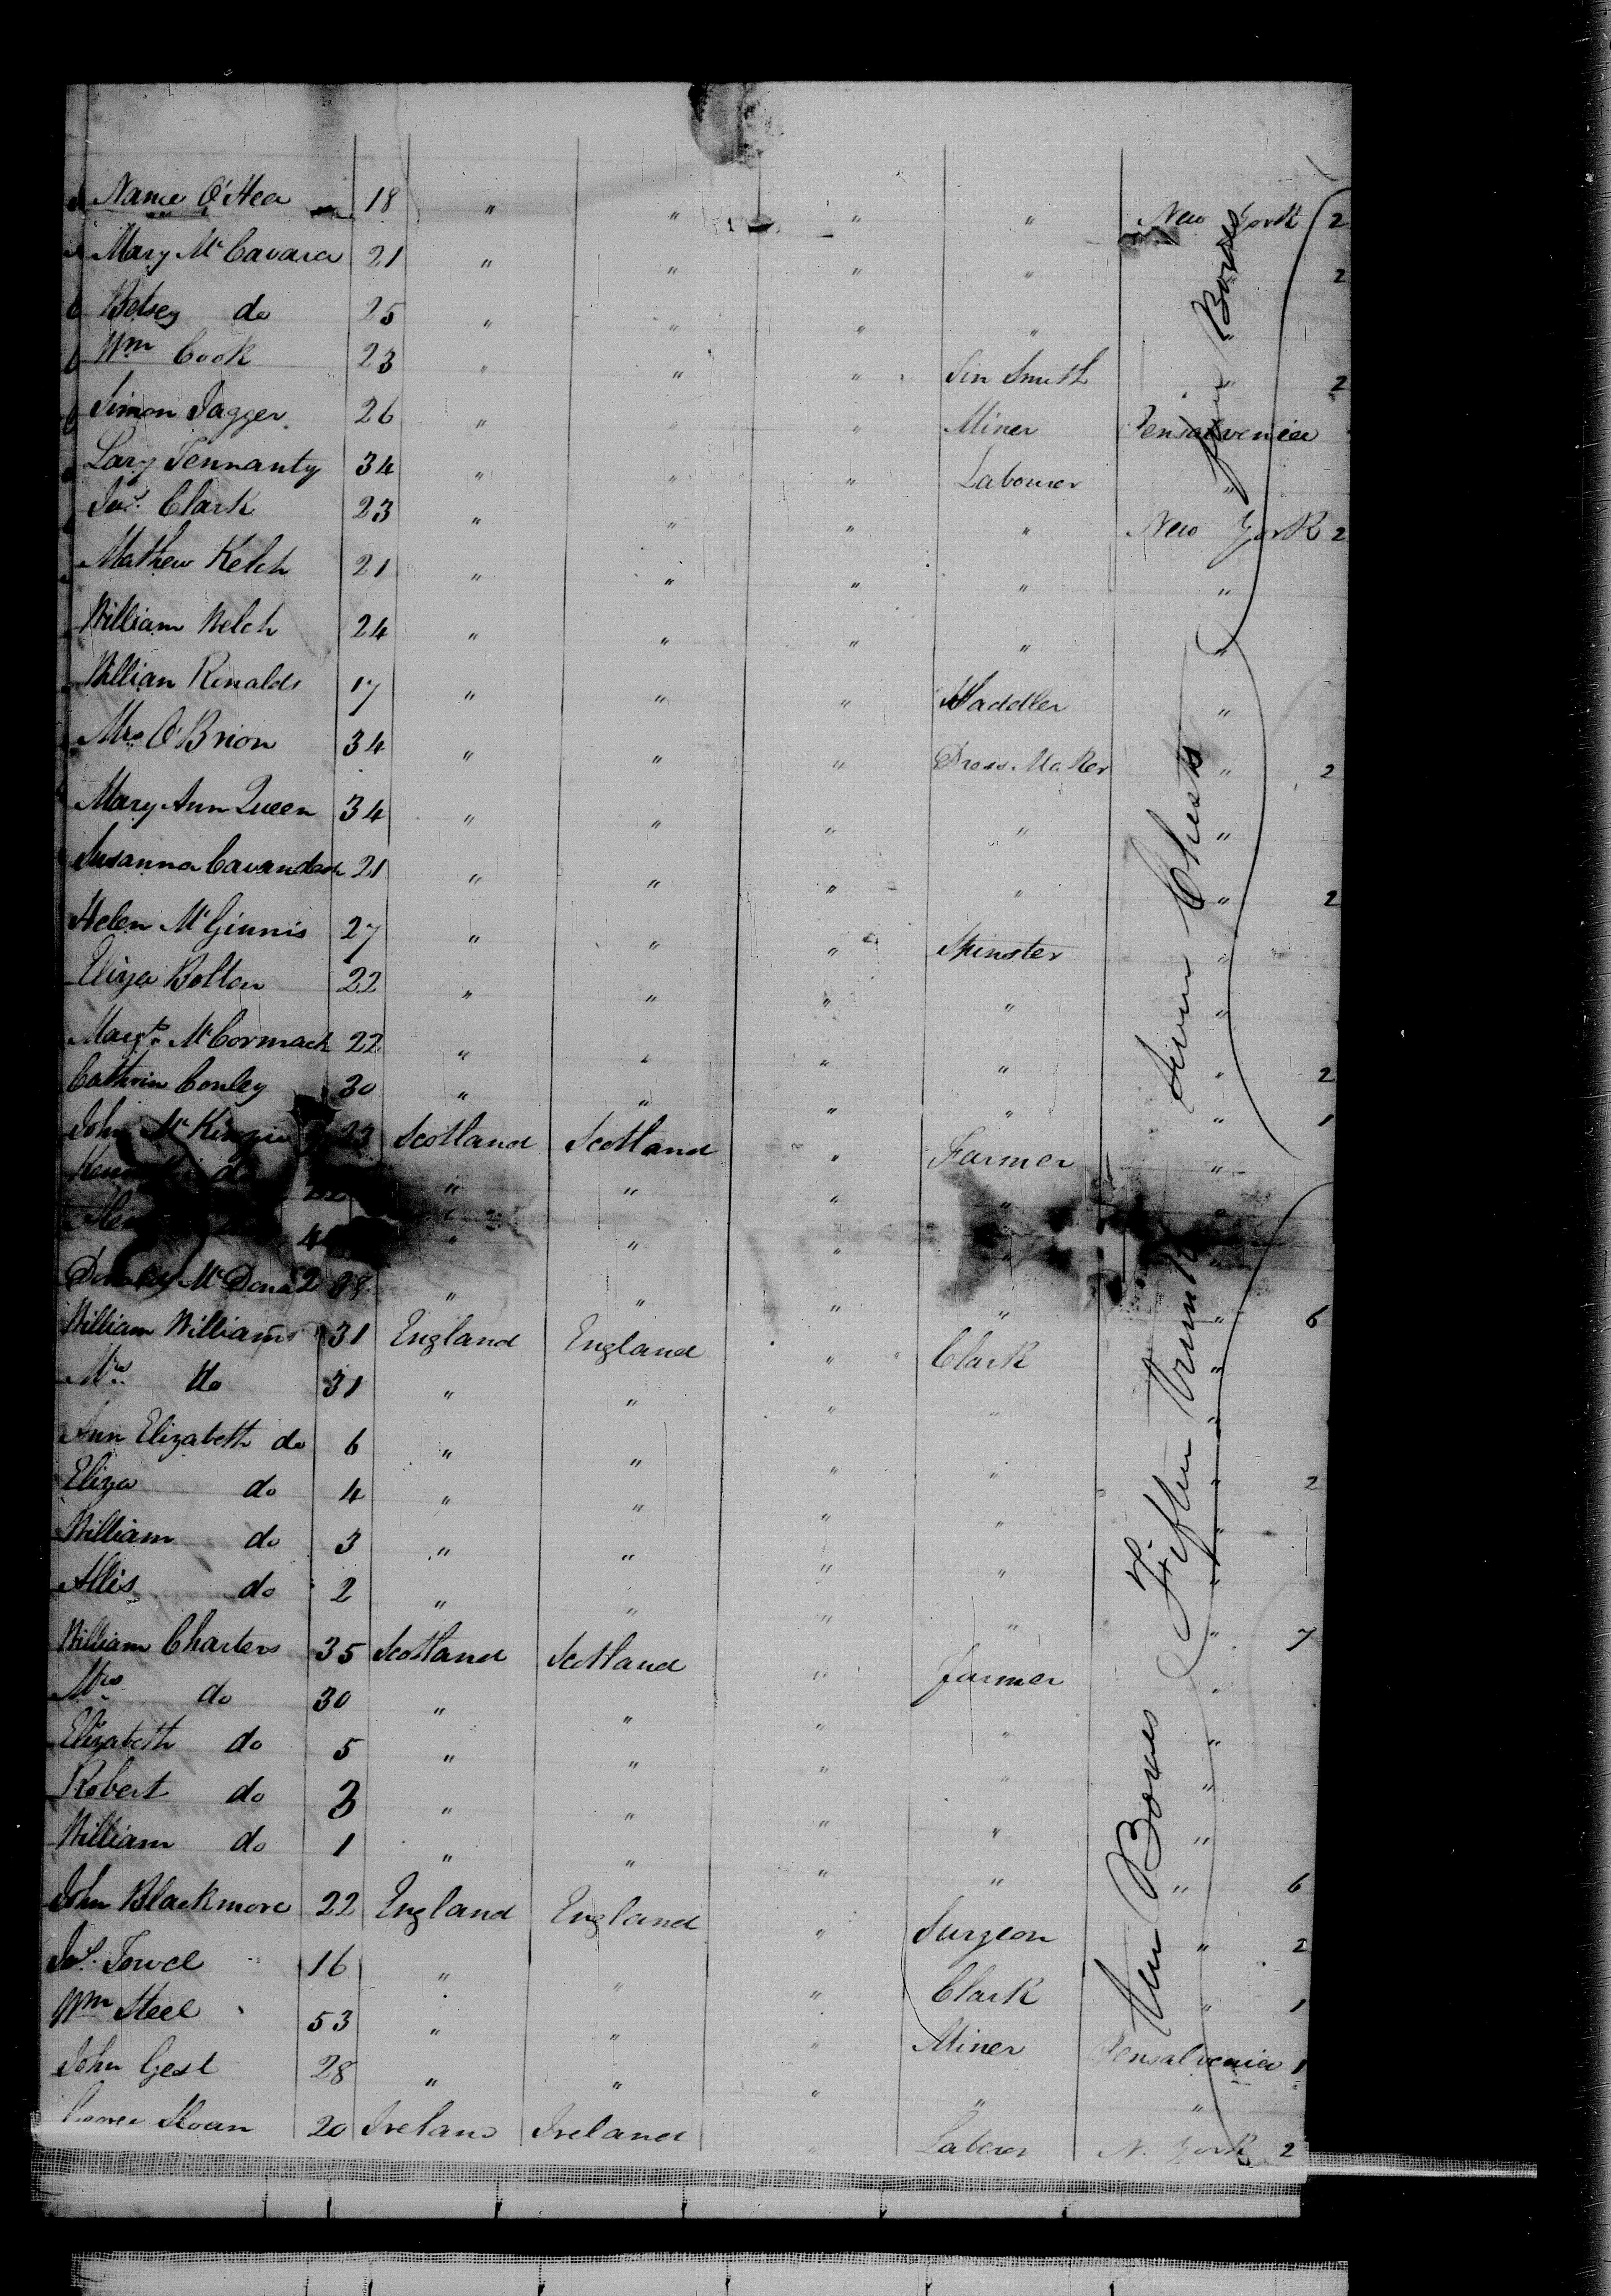 Nance O'Hea 18 " " " " New York 2
Mary Mc Cavara 21 " " " " 2
Betsey do 25 " " " "
Wm Cook 23 " " " Tin Smith " 2
Simon Jagger 26 " " " Miner Pensalvenia
Lary Tennanty 34 " " " Labourer "
Jas. Clark 23 " " " " New York 2
Mathew Kelch 21 " " " " "
William Welch 24 " " " " "
Willian Rinalds 17 " " " Saddler "
Mrs O'Brion 34 " " " Dress Maker " 2
Mary Ann Queen 34 " " " " "
Susanna Cavandish 21 " " " " " 2
Helen McGinnis 27 " " " Spinster "
Eliza Bolton 22 " " " " "
Margt. McCormack 22 " " " " " 2
Cathrin Conley 30 " " " " " 1
John McKinzie 23 Scotland Scotland " Farmer "
do " " " " "
" " " "
McDonald 28 " " " " " 6
William Williams 31 England England " Clark "
Mrs do 31 " " " " "
Ann Elizabeth do 6 " " " "
Eliza do 4 " " " " " 2
William do 3 " " " " "
Allis do 2 " " " " " 7
William Charters 35 Scotland Scotland " farmer "
Mrs do 30 " " " " "
Elizabeth do 5 " " " " "
Robert do 3 " " " " "
William do 1 " " " " " 6
John Blackmore 22 England England " Surgeon " 2
Jos. Towel 16 " " " Clark " 1
Wm Steel 53 " " " Miner Pensalvenia 1
John Gest 28 " " " " "
Sloan 20 Ireland Ireland " Laberer N. York 2
four Boxes
Seven Chests
Fifteen Trunks
Ten Boxes